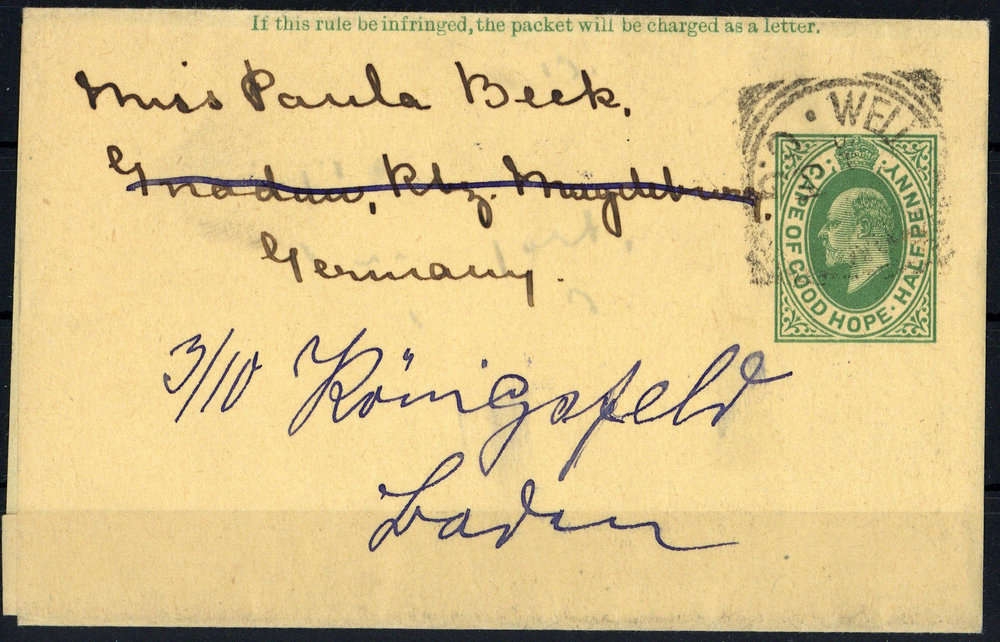 If this rule be infringed, the packet will be charged as a letter.
Miss Paula Beck,
Gnadau, Rbz. Magdeburg.
Germany.
3/10 Königsfeld
Baden
WELL
CAPE OF GOOD HOPE · HALFPENNY ·